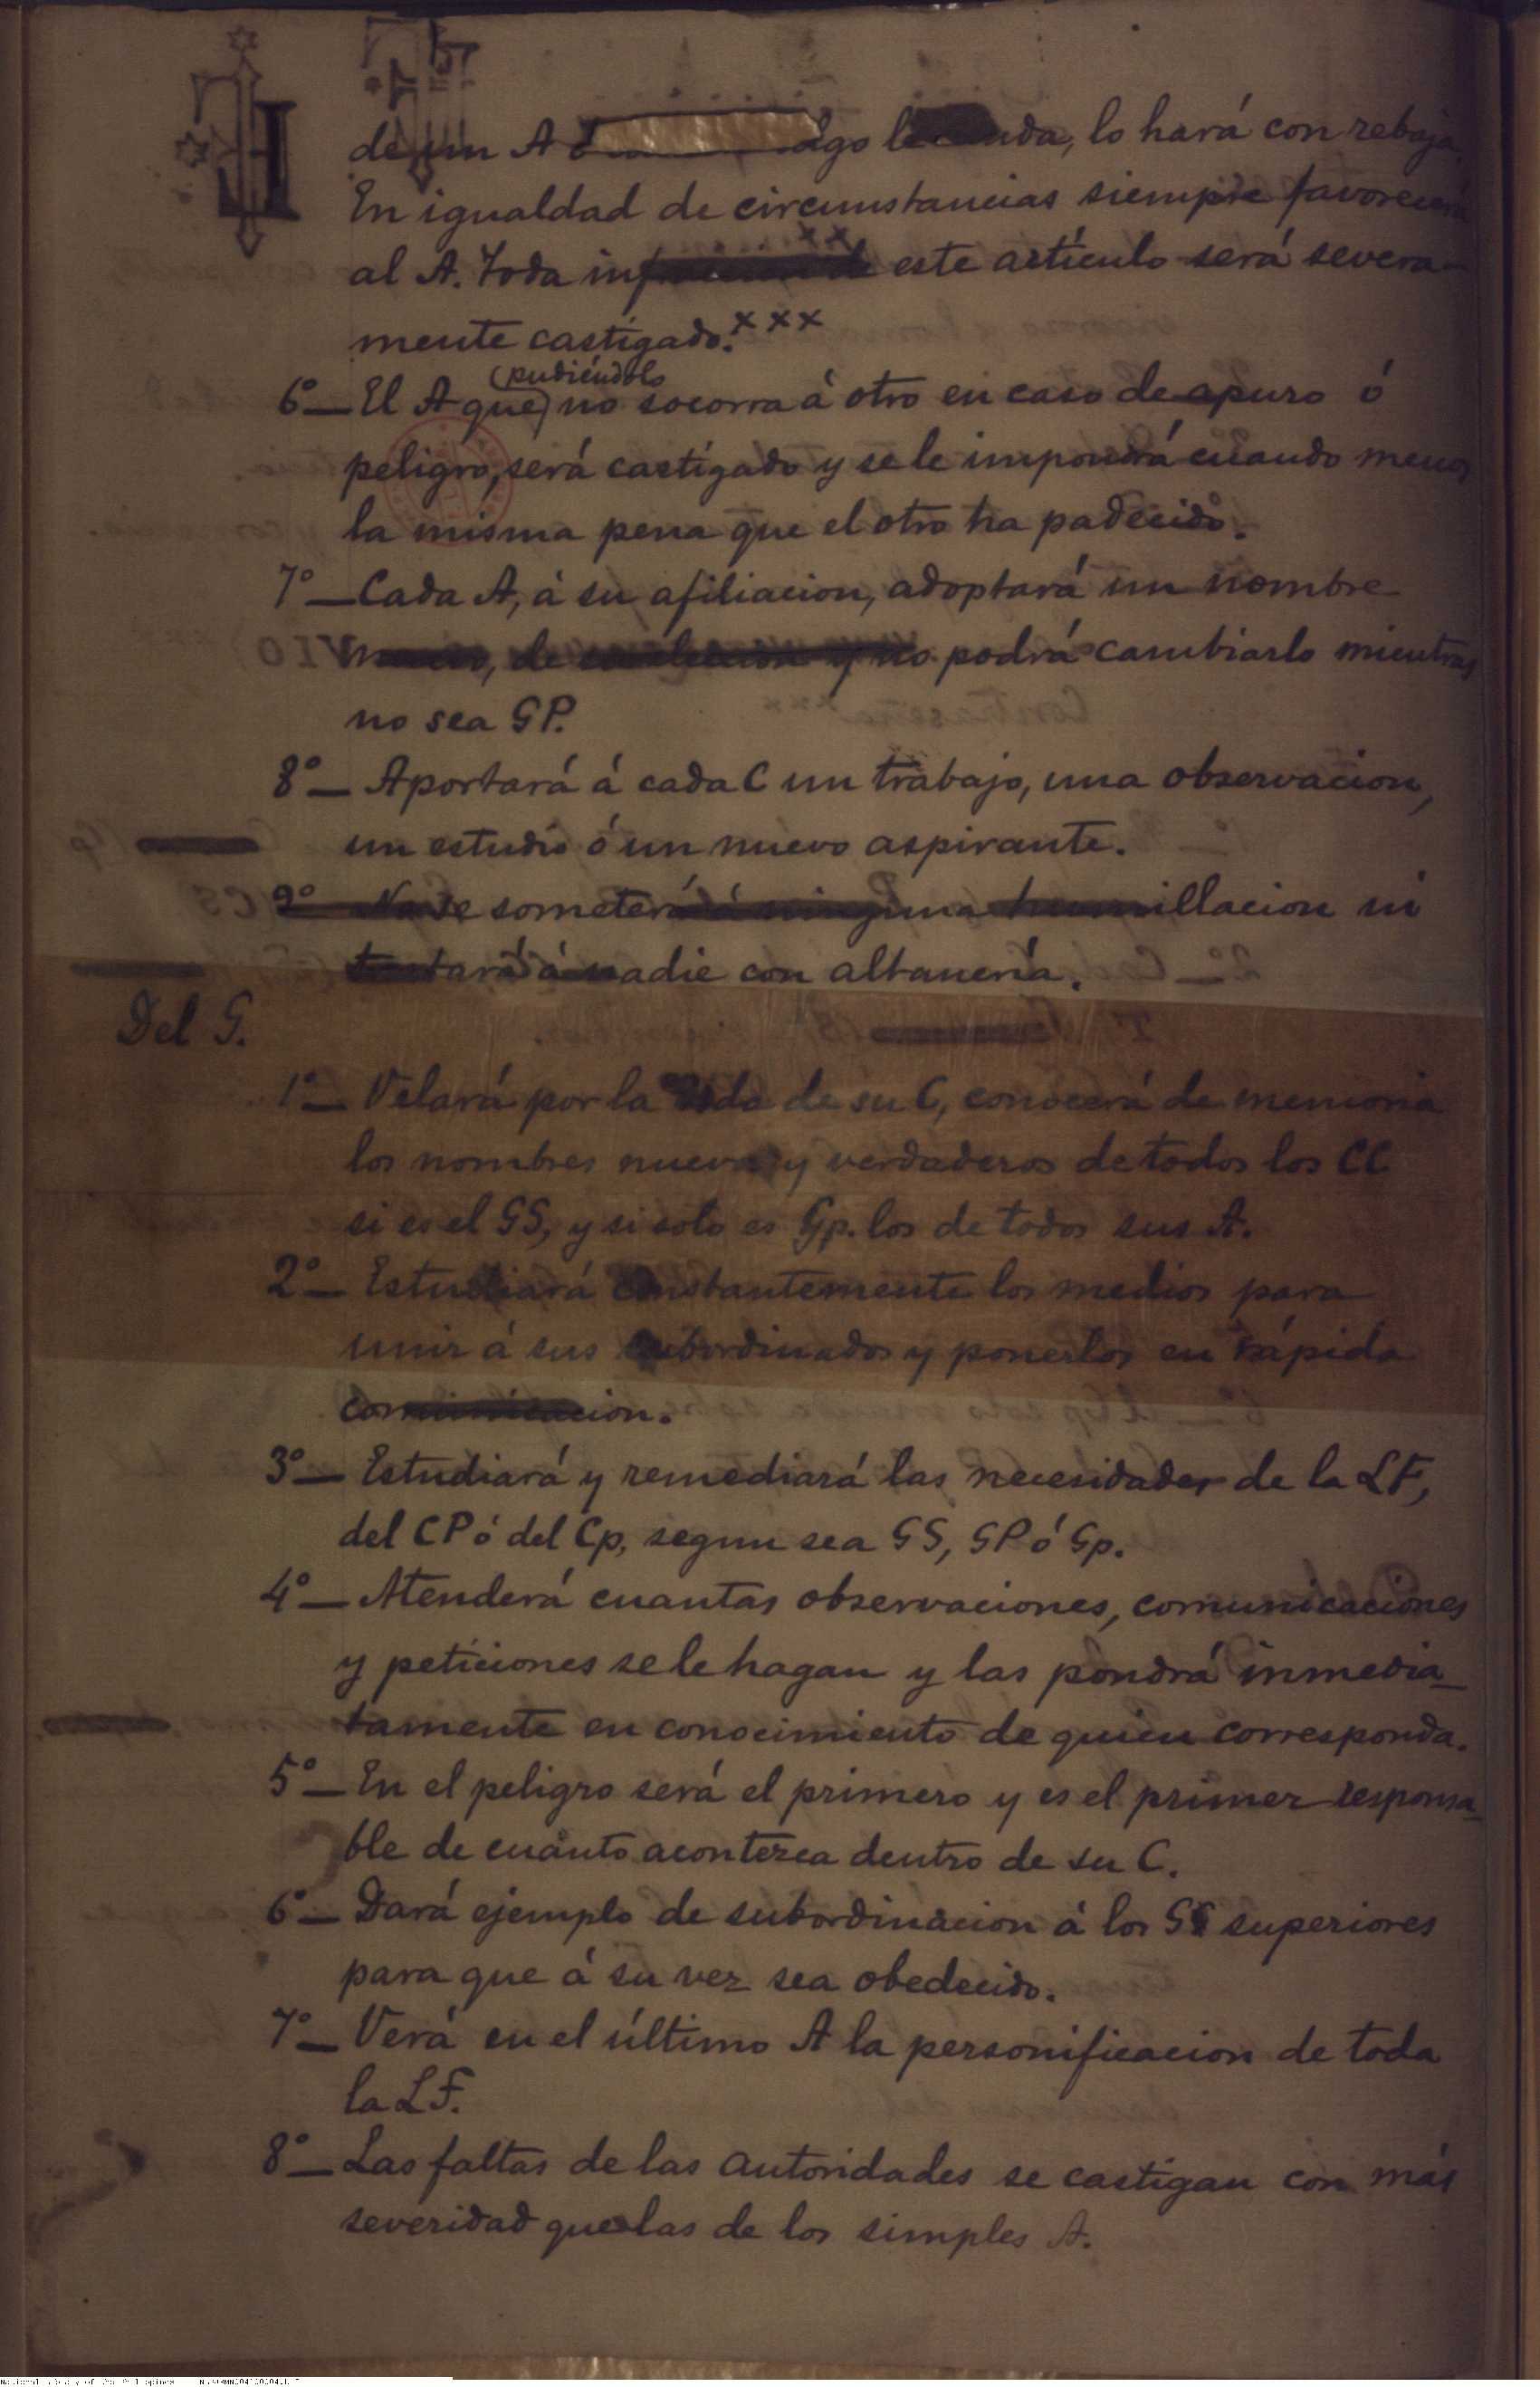 de un A ó algo le venda, lo hará con rebaja.
En igualdad de circunstancias siempre favorecerá
al A. Toda infraccion de este artículo será severa-
mente castigado.xxx
(pudiéndolo
6º— El A que) no socorra á otro en caso de apuro ó
peligro, será castigado y se le impondrá cuando menos
la misma pena que el otro ha padecido.
7º— Cada A, á su afiliacion, adoptará un nombre
nuevo, de su eleccion y no podrá cambiarlo mientras
no sea GP.
8º— Aportará á cada C un trabajo, una observacion,
un estudio ó un nuevo aspirante.
9º No se someterá á ninguna humillacion ni
tratará á nadie con altanería.
Del G.
1º— Velará por la vida de su C, conocerá de memoria
los nombres nuevos y verdaderos de todos los CC
si es el GS, y si solo es Gp. los de todos sus A.
2º— Estudiará constantemente los medios para
unir á sus subordinados y ponerlos en rápida
comunicacion.
3º— Estudiará y remediará las necesidades de la LF,
del CP ó del Cp, segun sea GS, GP ó Gp.
4º— Atenderá cuantas observaciones, comunicaciones
y peticiones se le hagan y las pondrá inmedia-
tamente en conocimiento de quien corresponda.
5º— En el peligro será el primero y es el primer responsa-
ble de cuanto acontezca dentro de su C.
6º— Dará ejemplo de subordinacion á los GG superiores
para que á su vez sea obedecido.
7º— Verá en el último A la personificacion de toda
la LF.
8º— Las faltas de las autoridades se castigan con más
severidad que las de los simples A.